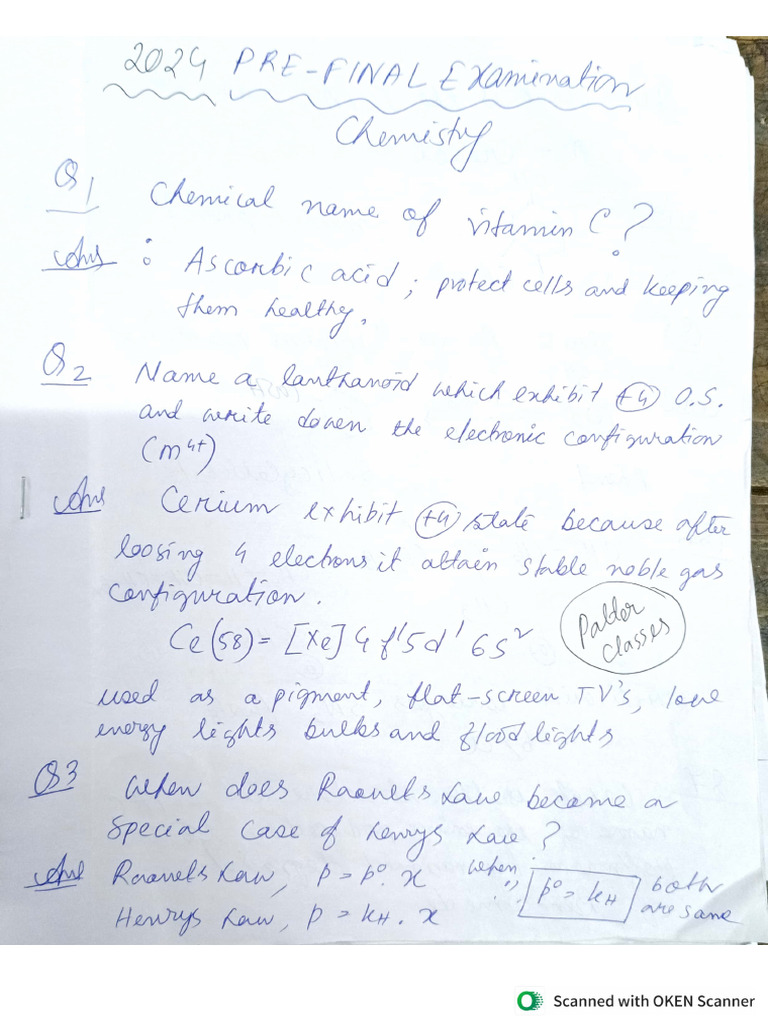 2024 PRE-FINAL Examination
Chemistry
Q1 Chemical name of vitamin C?
Ans: Ascorbic acid; protect cells and keeping
them healthy.
Q2 Name a lanthanoid which exhibit +4 O.S.
and write down the electronic configuration
(M⁴⁺)
Ans Cerium exhibit +4 state because after
loosing 4 electrons it attain stable noble gas
configuration.
Ce(58) = [Xe] 4f¹5d¹6s²
Palder
classes
used as a pigment, flat-screen TV's, low
energy lights bulbs and flood lights
Q3 When does Raoults Law become a
Special case of Henrys Law?
Ans Raoults Law, p = p⁰.x when p⁰ = kH both
Henrys Law, p = kH.x are same
Scanned with OKEN Scanner